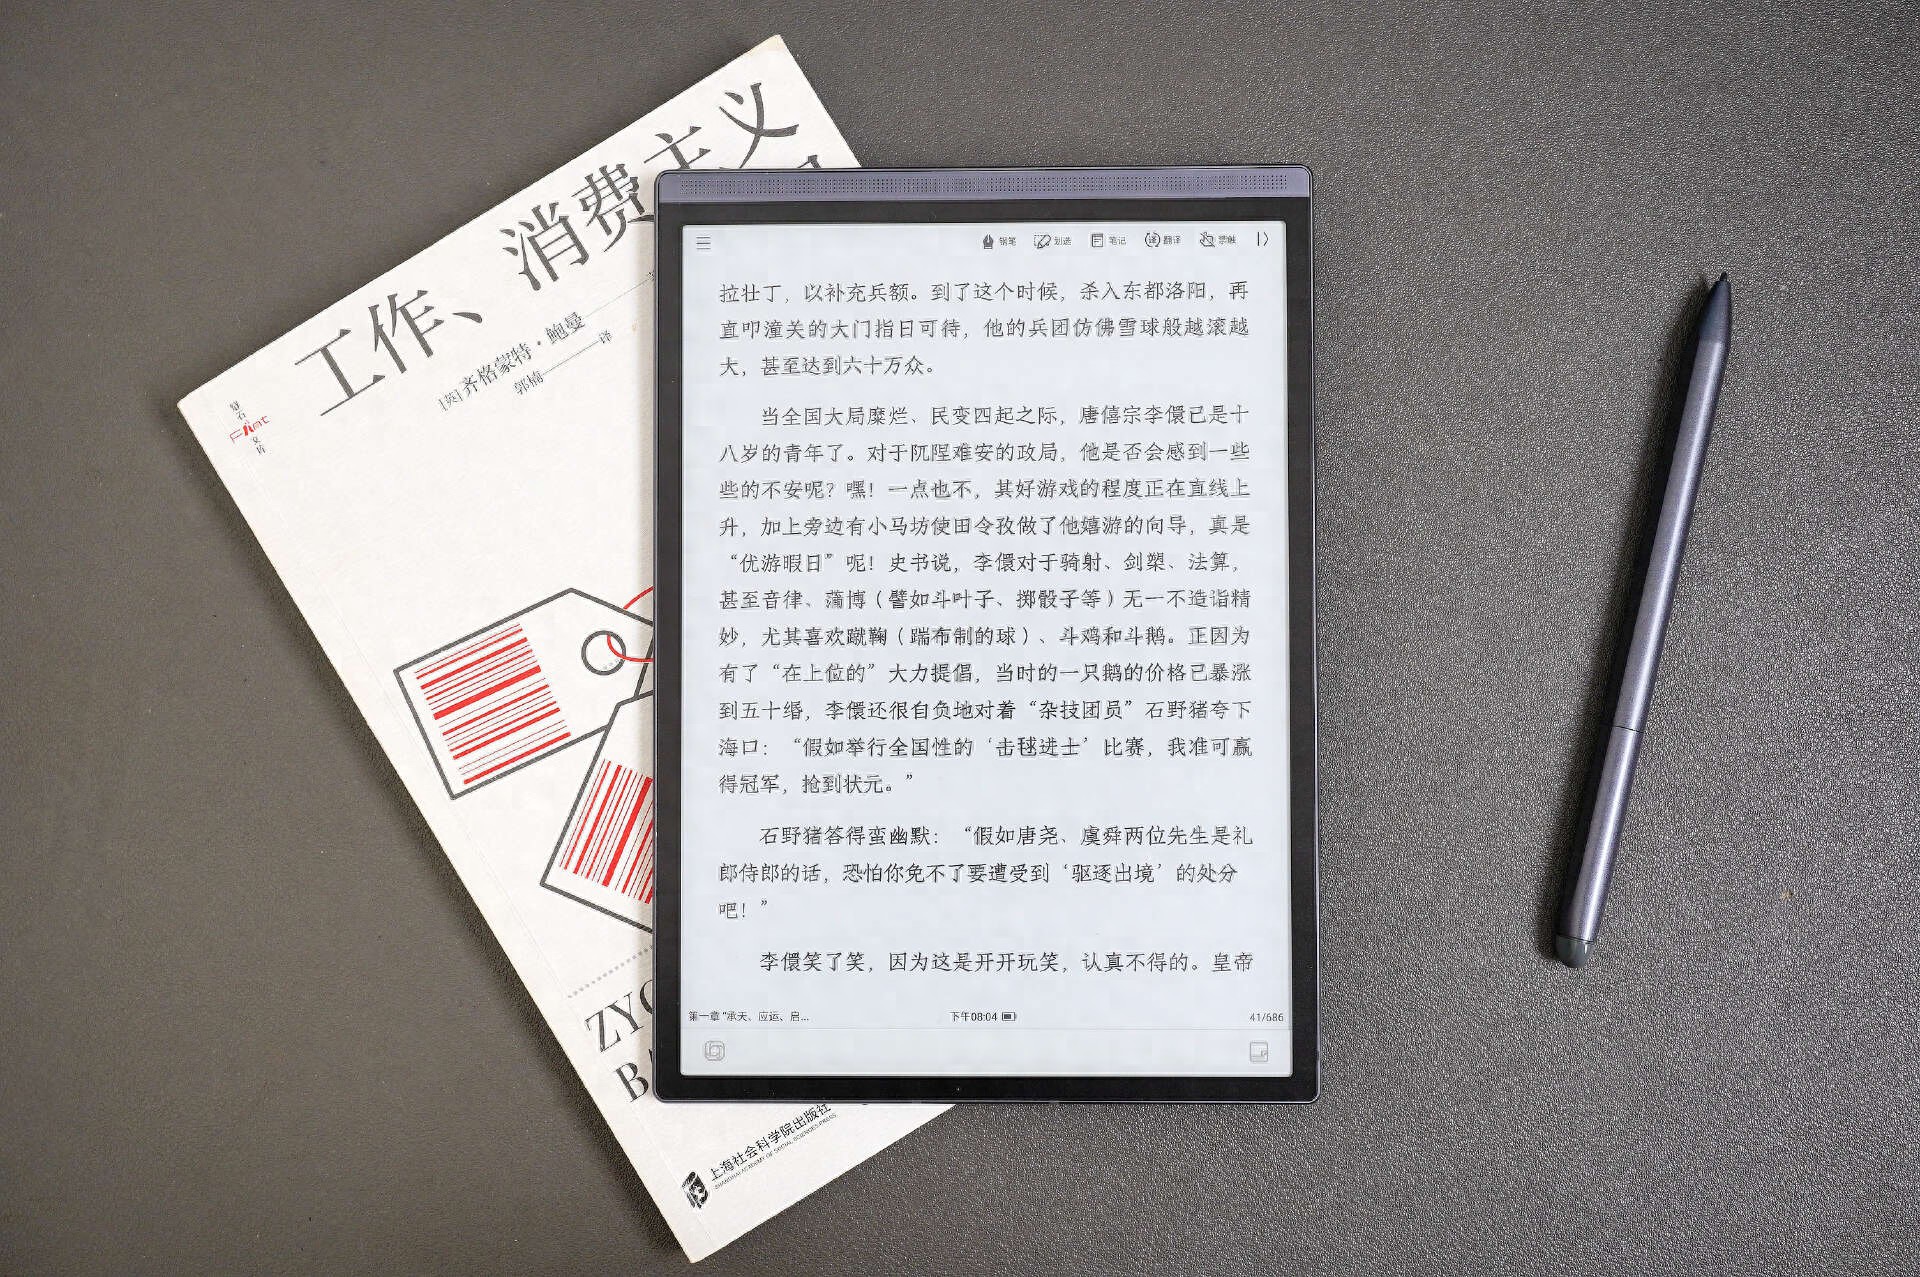 工作、消费主义
[英]齐格蒙特·鲍曼
郭楠 译
ZYG
BA
上海社会科学院出版社
SHANGHAI ACADEMY OF SOCIAL SCIENCES PRESS
钢笔 划选 笔记 翻译 禁触
拉壮丁，以补充兵额。到了这个时候，杀入东都洛阳，再
直叩潼关的大门指日可待，他的兵团仿佛雪球般越滚越
大，甚至达到六十万众。
当全国大局糜烂、民变四起之际，唐僖宗李儇已是十
八岁的青年了。对于阢陧难安的政局，他是否会感到一些
些的不安呢？嘿！一点也不，其好游戏的程度正在直线上
升，加上旁边有小马坊使田令孜做了他嬉游的向导，真是
“优游暇日”呢！史书说，李儇对于骑射、剑槊、法算，
甚至音律、蒲博（譬如斗叶子、掷骰子等）无一不造诣精
妙，尤其喜欢蹴鞠（踹布制的球）、斗鸡和斗鹅。正因为
有了“在上位的”大力提倡，当时的一只鹅的价格已暴涨
到五十缗，李儇还很自负地对着“杂技团员”石野猪夸下
海口：“假如举行全国性的‘击毬进士’比赛，我准可赢
得冠军，抢到状元。”
石野猪答得蛮幽默：“假如唐尧、虞舜两位先生是礼
郎侍郎的话，恐怕你免不了要遭受到‘驱逐出境’的处分
吧！”
李儇笑了笑，因为这是开开玩笑，认真不得的。皇帝
第一章“承天、应运、启...
下午08:04
41/686